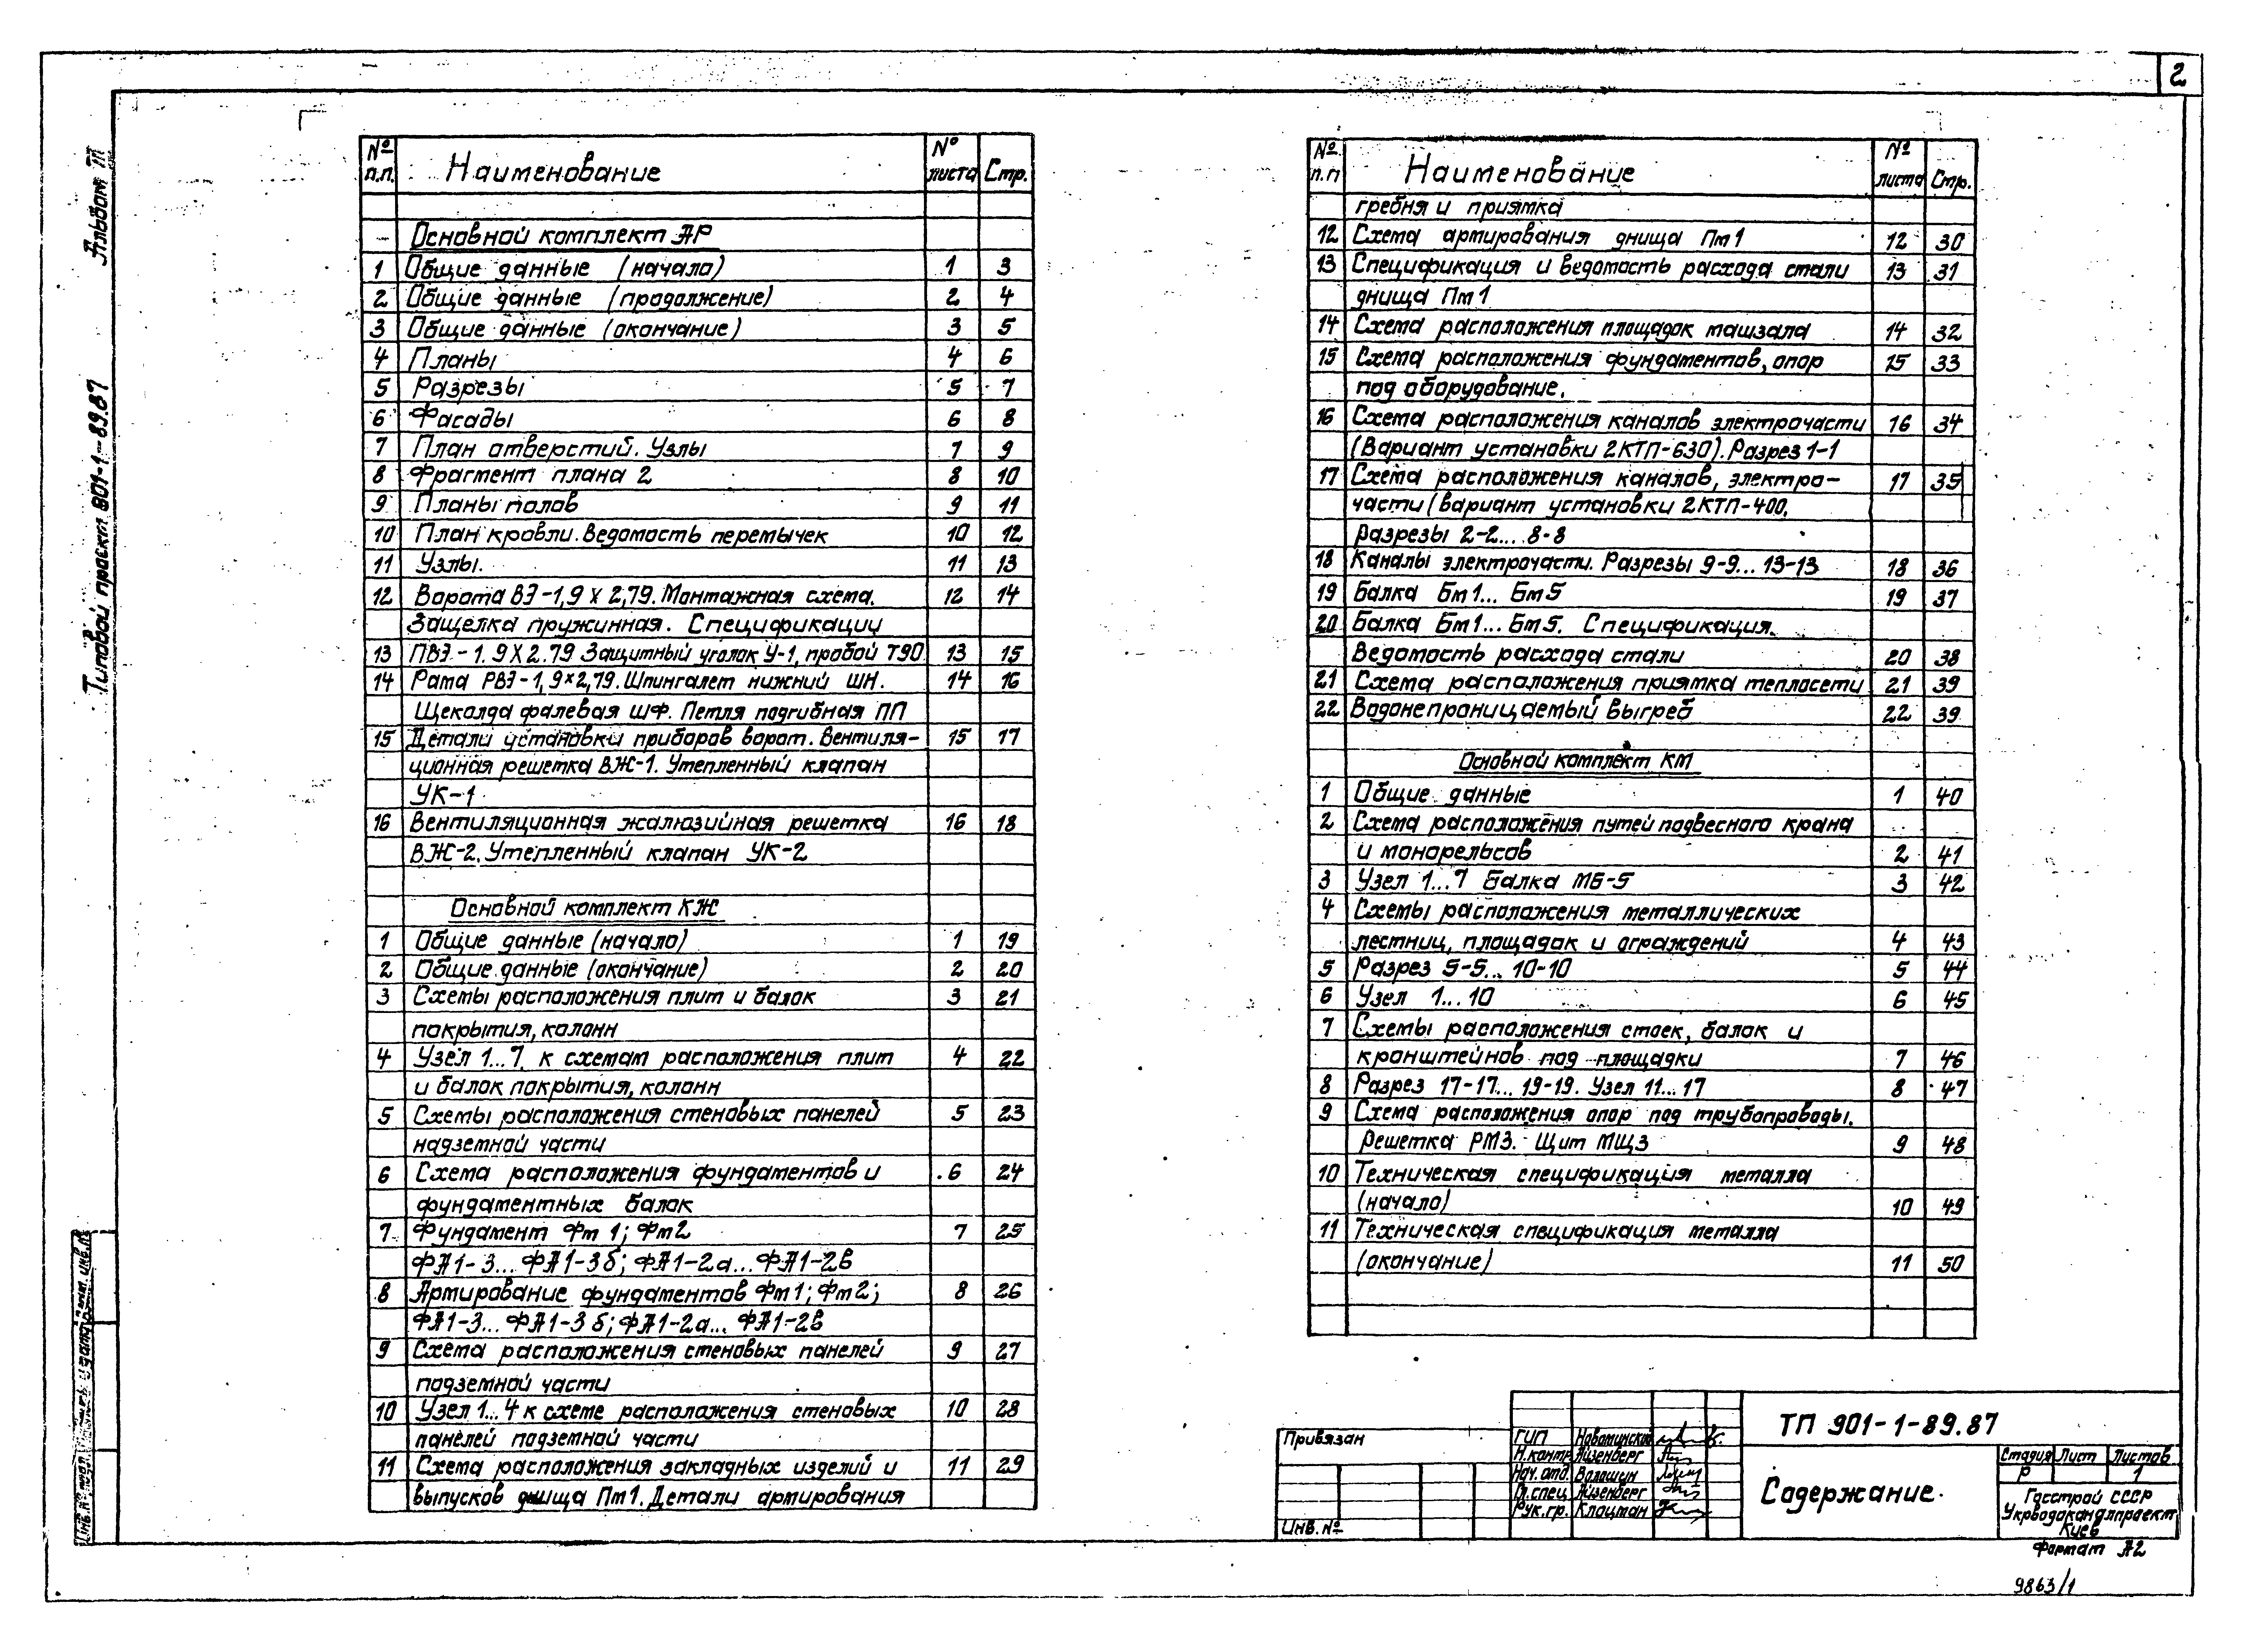 2
Альбом III
Типовой проект 901-1-89.87
№ п.п. Наименование № листа Стр.
Основной комплект АР
1 Общие данные (начало) 1 3
2 Общие данные (продолжение) 2 4
3 Общие данные (окончание) 3 5
4 Планы 4 6
5 Разрезы 5 7
6 Фасады 6 8
7 План отверстий. Узлы 7 9
8 Фрагмент плана 2 8 10
9 Планы полов 9 11
10 План кровли. Ведомость перемычек 10 12
11 Узлы. 11 13
12 Ворота ВЭ-1,9 х 2,79. Монтажная схема. 12 14
Защелка пружинная. Спецификации
13 ПВЭ-1.9 х 2.79 Защитный уголок У-1, пробой Т90 13 15
14 Рама РВЭ-1,9х2,79. Шпингалет нижний ШН. 14 16
Щеколда фалевая ШФ. Петля подгибная ПП
15 Детали установки приборов ворот. Вентиля- 15 17
ционная решетка ВЖ-1. Утепленный клапан
УК-1
16 Вентиляционная жалюзийная решетка 16 18
ВЖ-2. Утепленный клапан УК-2
Основной комплект КЖ
1 Общие данные (начало) 1 19
2 Общие данные (окончание) 2 20
3 Схемы расположения плит и балок 3 21
покрытия, колонн
4 Узел 1...7. к схемам расположения плит 4 22
и балок покрытия, колонн
5 Схемы расположения стеновых панелей 5 23
надземной части
6 Схема расположения фундаментов и 6 24
фундаментных балок
7 Фундамент Фм 1; Фм2 7 25
ФА1-3... ФА1-3б; ФА1-2а... ФА1-2в
8 Армирование фундаментов Фм1; Фм2; 8 26
ФА1-3... ФА1-3б; ФА1-2а... ФА1-2в
9 Схема расположения стеновых панелей 9 27
подземной части
10 Узел 1... 4 к схеме расположения стеновых 10 28
панелей подземной части
11 Схема расположения закладных изделий и 11 29
выпусков днища Пм1. Детали армирования
№ п.п Наименование № листа Стр.
гребня и приямка
12 Схема армирования днища Пм1 12 30
13 Спецификация и ведомость расхода стали 13 31
днища Пм1
14 Схема расположения площадок машзала 14 32
15 Схема расположения фундаментов, опор 15 33
под оборудование.
16 Схема расположения каналов электрочасти 16 34
(Вариант установки 2КТП-630). Разрез 1-1
17 Схема расположения каналов, электро- 17 35
части (вариант установки 2КТП-400.
Разрезы 2-2... 8-8
18 Каналы электрочасти. Разрезы 9-9... 13-13 18 36
19 Балка Бм1... Бм5 19 37
20 Балка Бм1... Бм5. Спецификация.
Ведомость расхода стали 20 38
21 Схема расположения приямка теплосети 21 39
22 Водонепроницаемый выгреб 22 39
Основной комплект КМ
1 Общие данные 1 40
2 Схема расположения путей подвесного крана
и монорельсов 2 41
3 Узел 1...7 Балка МБ-5 3 42
4 Схемы расположения металлических
лестниц, площадок и ограждений 4 43
5 Разрез 5-5... 10-10 5 44
6 Узел 1...10 6 45
7 Схемы расположения стоек, балок и
кронштейнов под площадки 7 46
8 Разрез 17-17... 19-19. Узел 11...17 8 47
9 Схема расположения опор под трубопроводы.
Решетка РМ3. Щит МЩ3 9 48
10 Техническая спецификация металла
(начало) 10 49
11 Техническая спецификация металла
(окончание) 11 50
Привязан
Инв. №
ГИП
Н.контр Айзенберг
Нач. отд. Волошен
Гл. спец Айзенберг
Рук. гр. Клоцман
ТП 901-1-89.87
Содержание.
Стадия Лист Листов
Р 1
Госстрой СССР
Укрводоканалпроект
Киев
Формат А2
9863/1